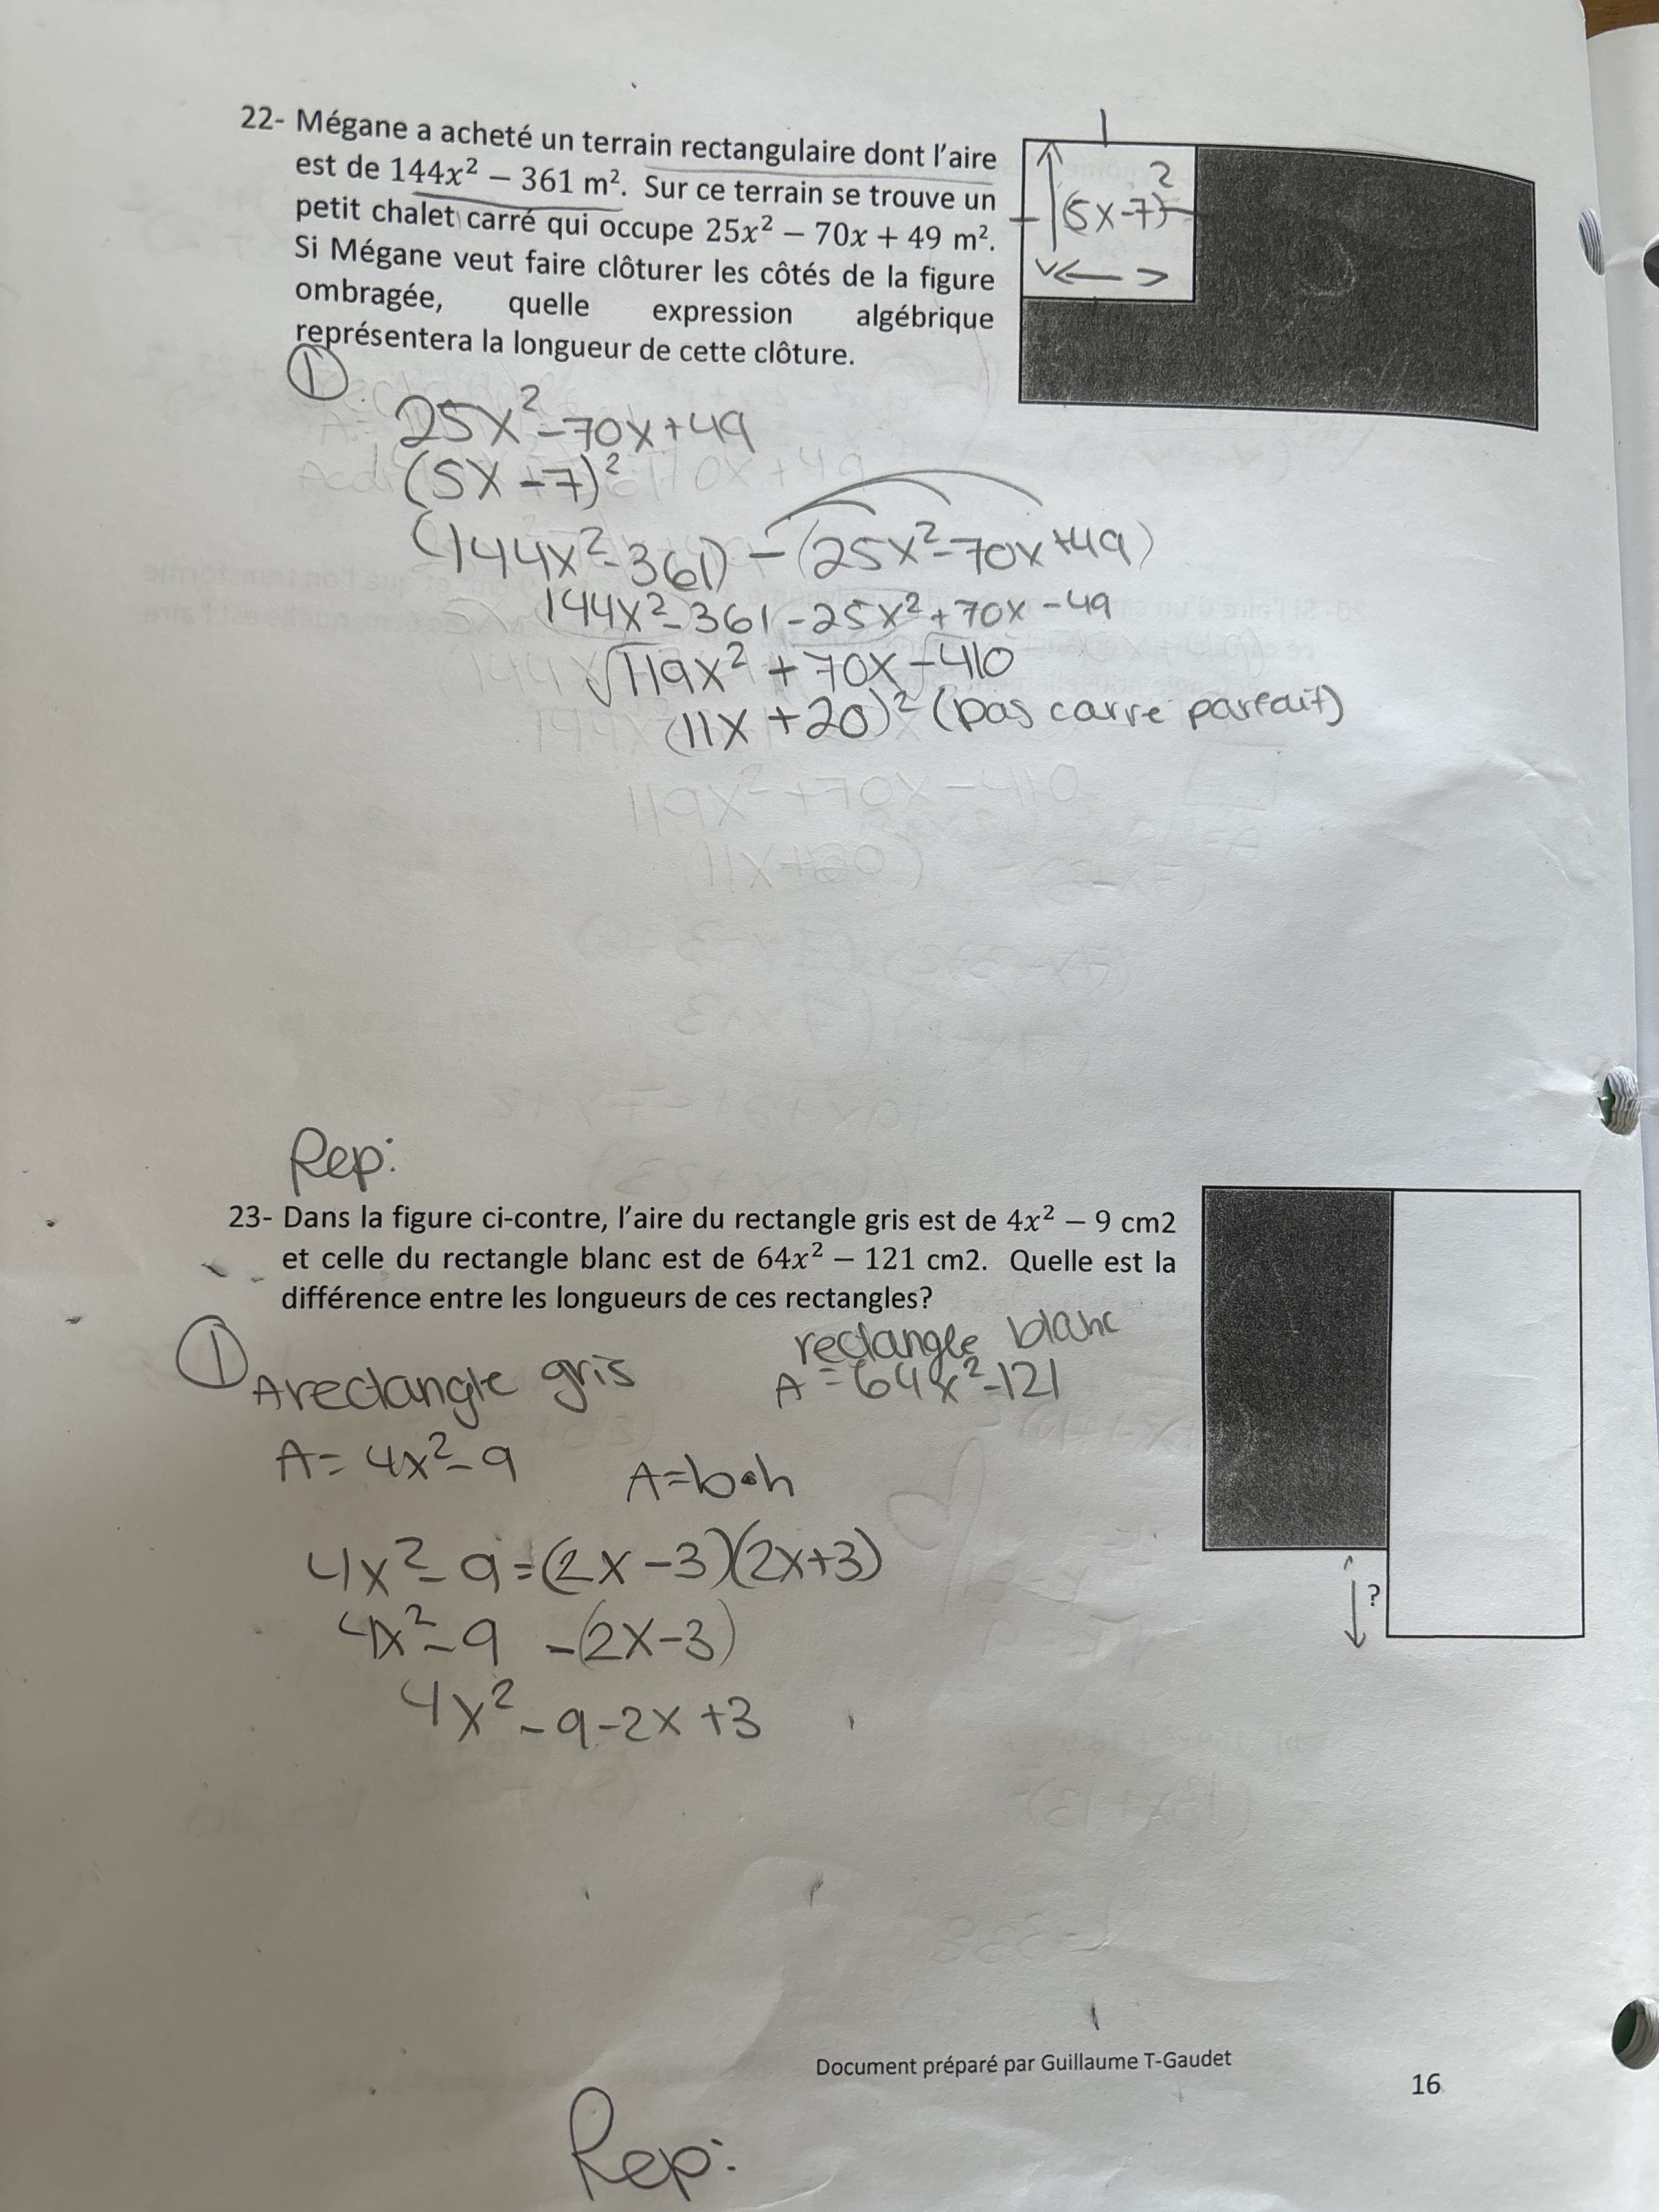 22- Mégane a acheté un terrain rectangulaire dont l'aire
est de 144x² − 361 m². Sur ce terrain se trouve un
petit chalet carré qui occupe 25x² − 70x + 49 m².
Si Mégane veut faire clôturer les côtés de la figure
ombragée, quelle expression algébrique
représentera la longueur de cette clôture.
(5x-7)²
①
25x²-70x+49
(5x-7)²
(144x²-361) - (25x²-70x+49)
144x²-361-25x²+70x-49
√119x²+70x-410
(11x+20)² (pas carre parfait)
Rep:
23- Dans la figure ci-contre, l'aire du rectangle gris est de 4x² − 9 cm2
et celle du rectangle blanc est de 64x² − 121 cm2. Quelle est la
différence entre les longueurs de ces rectangles?
① Arectangle gris
rectangle blanc
A=64x²-121
A=4x²-9
A=b•h
4x²-9=(2x-3)(2x+3)
4x²-9 -(2x-3)
4x²-9-2x+3
?
Document préparé par Guillaume T-Gaudet
16
Rep: